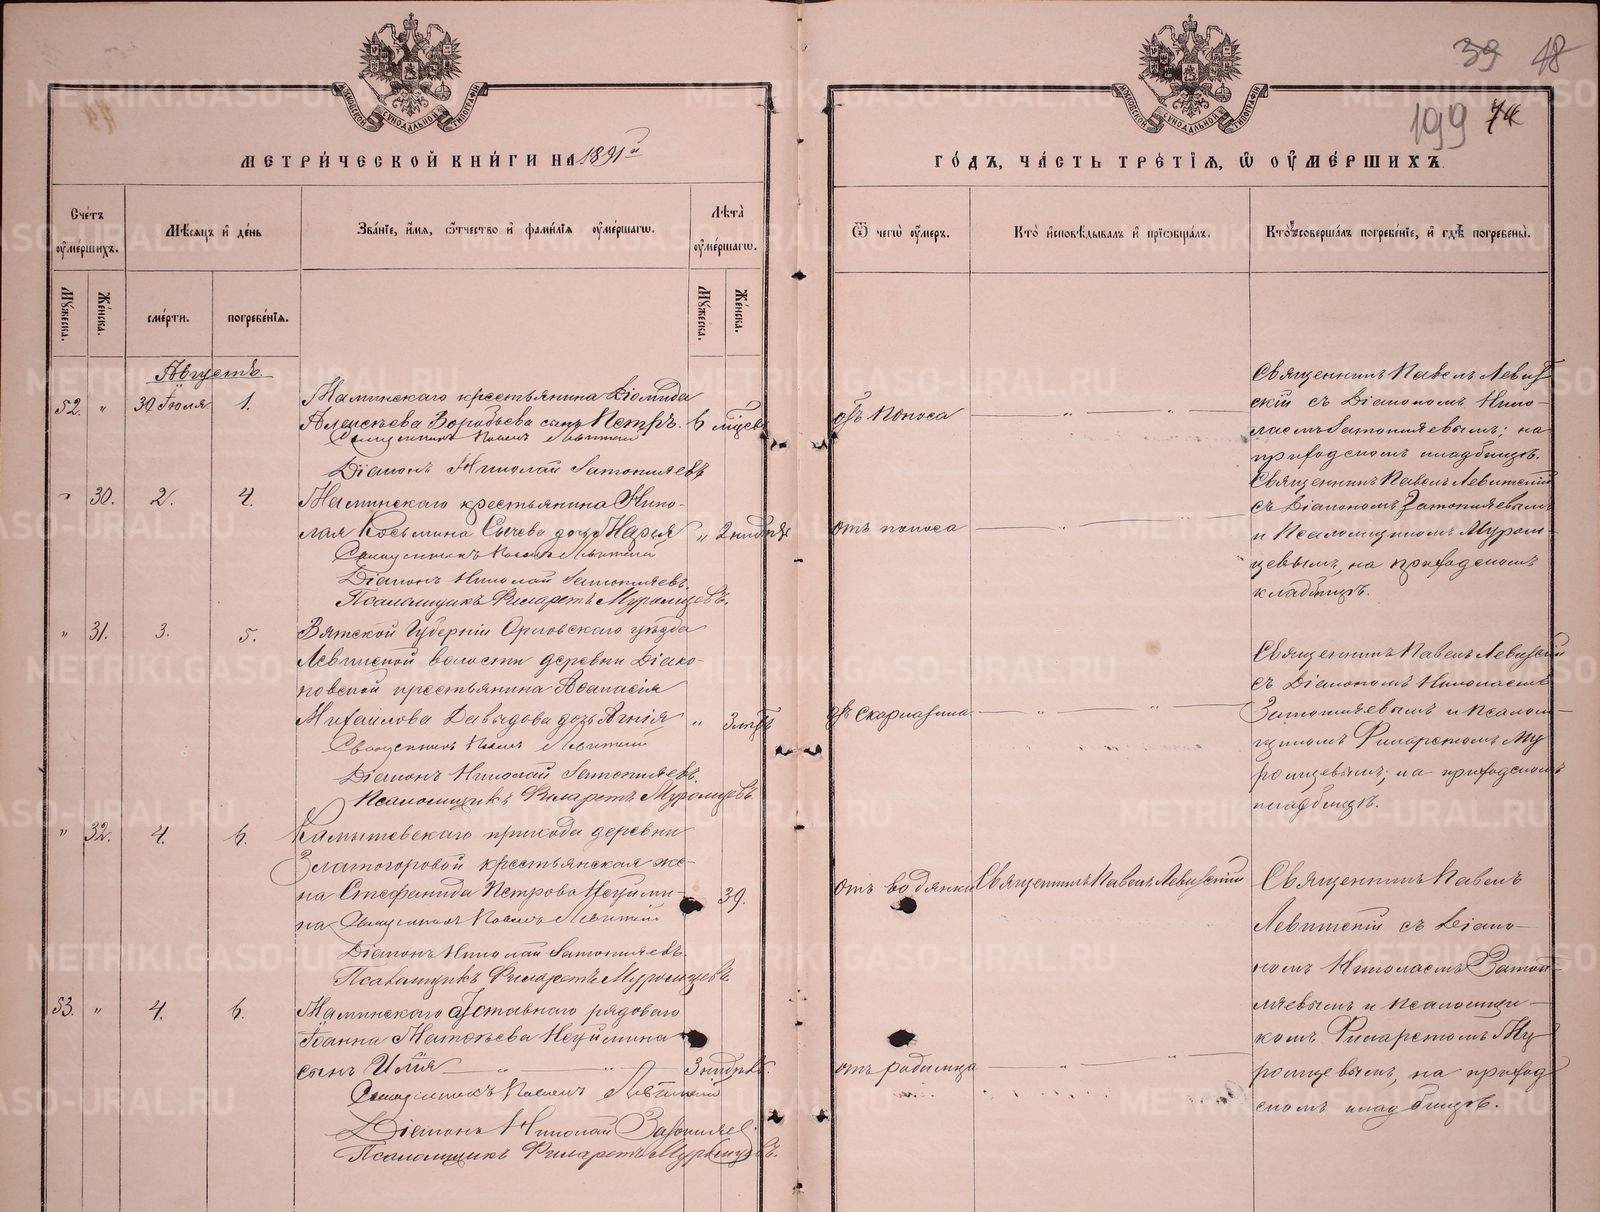 39 18
199 74
МЕТРИ́ЧЕСКОЙ КНИ́ГИ НА 1891й
ГО́ДЪ, ЧА́СТЬ ТРЕ́ТІѦ, Ѡ҆ ОУ҆МЕ́РШИХЪ.
Сче́тъ оу҆ме́ршихъ.
Мѣ́сѧцъ и҆ де́нь
Зва́нїе, и҆́мѧ, ѻ҆́тчество и҆ фами́лїѧ оу҆ме́ршагѡ.
Лѣ́та оу҆ме́ршагѡ.
Ѿ чегѡ̀ оу҆́меръ.
Кто̀ и҆сповѣ́дывалъ и҆ прїѡбща́лъ.
Кто̀ соверша́лъ погребе́нїе, и҆ гдѣ̀ погребены̀.
Мꙋ́жеска.
Же́нска.
сме́рти.
погребе́нїѧ.
Мꙋ́жеска.
Же́нска.
Августъ.
52. " 30 Іюля 1.
Маминскаго крестьянина Діомида
Алексѣева Воробьева сынъ Петръ. 6 мѣсев
Священникъ Павелъ Левитскій
Діаконъ Николай Затопляевъ
отъ поноса
Священникъ Павелъ Левит
скій съ Діакономъ Нико-
лаемъ Затопляевымъ; на
приходскомъ кладбищѣ.
" 30. 2. 4.
Маминскаго крестьянина Нико-
лая Козьмина Сычева дочь Марія " 2 недѣль
Священникъ Павелъ Левитскій
Діаконъ Николай Затопляевъ.
Псаломщикъ Филаретъ Муромцевъ.
отъ поноса
Священникъ Павелъ Левитскій
съ Діакономъ Затопляевымъ
и Псаломщикомъ Муром-
цевымъ, на приходскомъ
кладбищѣ.
" 31. 3. 5.
Вятской Губерніи Орловскаго уѣзда
волости деревни Діако-
новской крестьянина Аѳанасія
Михайлова Давыдова дочь Агнія " 3 лѣтъ
Священникъ Павелъ Левитскій
Діаконъ Николай Затопляевъ.
Псаломщикъ Филаретъ Муромцевъ
отъ скарлатина
Священникъ Павелъ Левитскій
съ Діакономъ Николаемъ
Затопляевымъ и Псалом-
щикомъ Филаретомъ Му
ромцевымъ; на приходскомъ
кладбищѣ.
" 32. 4. 6.
Камышевскаго прихода деревни
Златогоровой крестьянская же-
на Стефанида Петрова Неуйми- 39.
на Священникъ Павелъ Левитскій
Діаконъ Николай Затопляевъ.
Псаломщикъ Филаретъ Муромцевъ
отъ водянки
Священникъ Павелъ Левитскій
Священникъ Павелъ
Левитскій съ Діако-
номъ Николаемъ Затоп-
ляевымъ и Псаломщи-
комъ Филаретомъ Му
ромцевымъ, на приход
скомъ кладбищѣ.
53. " 4. 6.
Маминскаго отставнаго рядоваго
Іоанна Матѳеева Неуймина
сынъ Илія 3 недѣль
Священникъ Павелъ Левитскій
Діаконъ Николай Затопляев
Псаломщикъ Филаретъ Муромцевъ.
отъ родимца